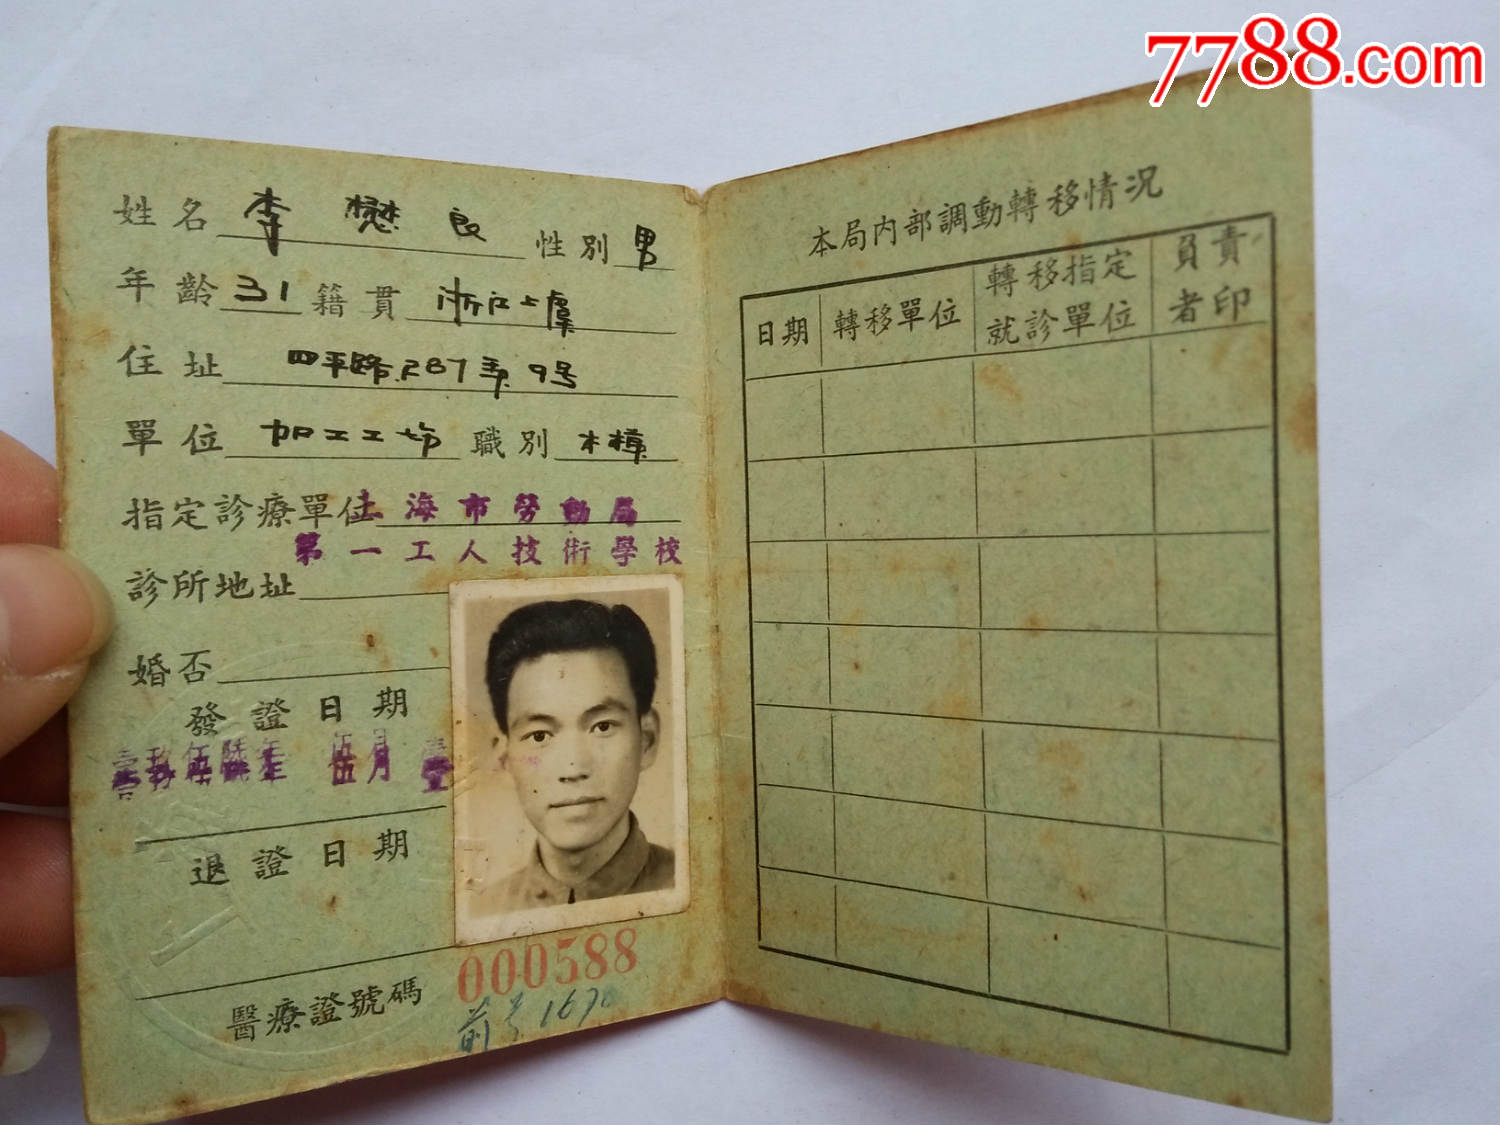 7788.com
姓名 李懋良 性別 男
年齡 31 籍貫 浙江上虞
住址 四平路287弄9号
單位 加工工場 職別 木模
指定診療單位 上海市勞動局
第一工人技術學校
診所地址
婚否
發證日期
壹玖伍陸年 伍月 壹
退證日期
醫療證號碼 000588
前号 1670
本局内部調動轉移情況
日期 轉移單位 轉移指定就診單位 負責者印